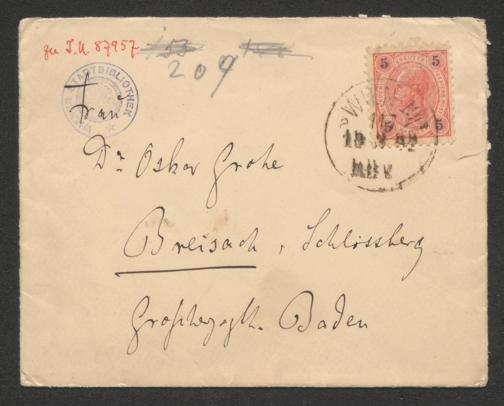 zu I.N. 87957
153
209
STADTBIBLIOTHEK
WIEN
5 5
5 5
WIEN
Frau
Dr Oskar Grohe
Breisach, Schlossberg
Großherzogth. Baden